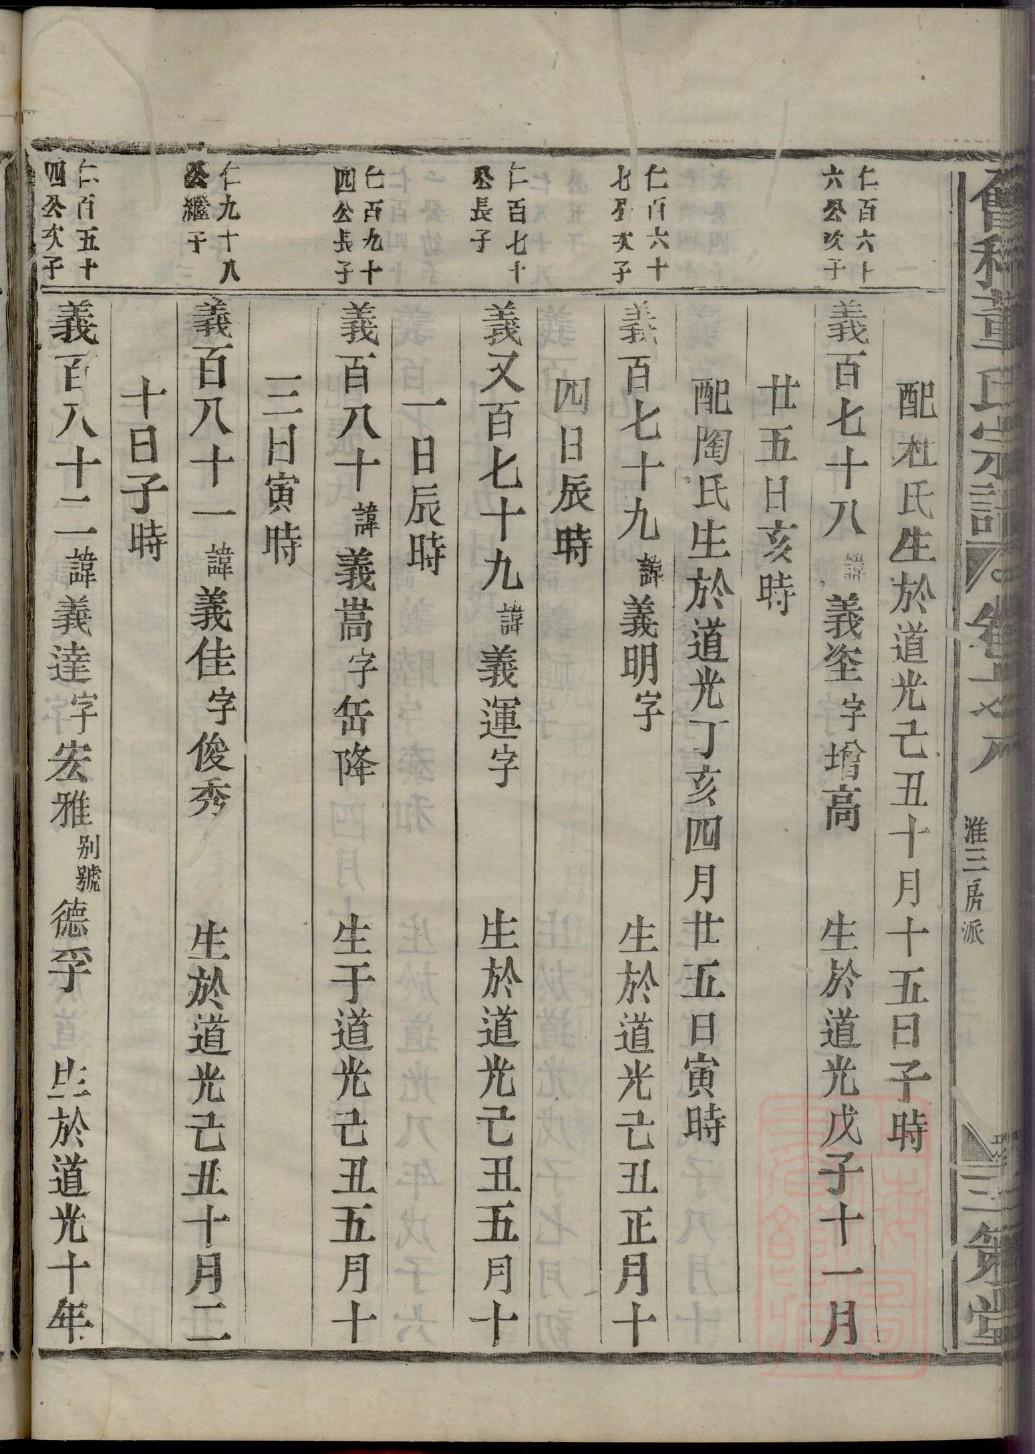 會稽董氏宗譜
淮三房派
三策堂
配杜氏生於道光己丑十月十五日子時
仁百六十六公次子
義百七十八諱義坴字增高 生於道光戊子十一月
廿五日亥時
配陶氏生於道光丁亥四月廿五日寅時
仁百六十七公次子
義百七十九諱義明字 生於道光己丑正月十
四日辰時
仁百七十公長子
義又百七十九諱義運字 生於道光己丑五月十
一日辰時
仁百九十四公長子
義百八十諱義嵩字岳降 生于道光己丑五月十
三日寅時
仁九十八公繼子
義百八十一諱義佳字俊秀 生於道光己丑十月二
十日子時
仁百五十四公次子
義百八十二諱義達字宏雅別號德孚 生於道光十年